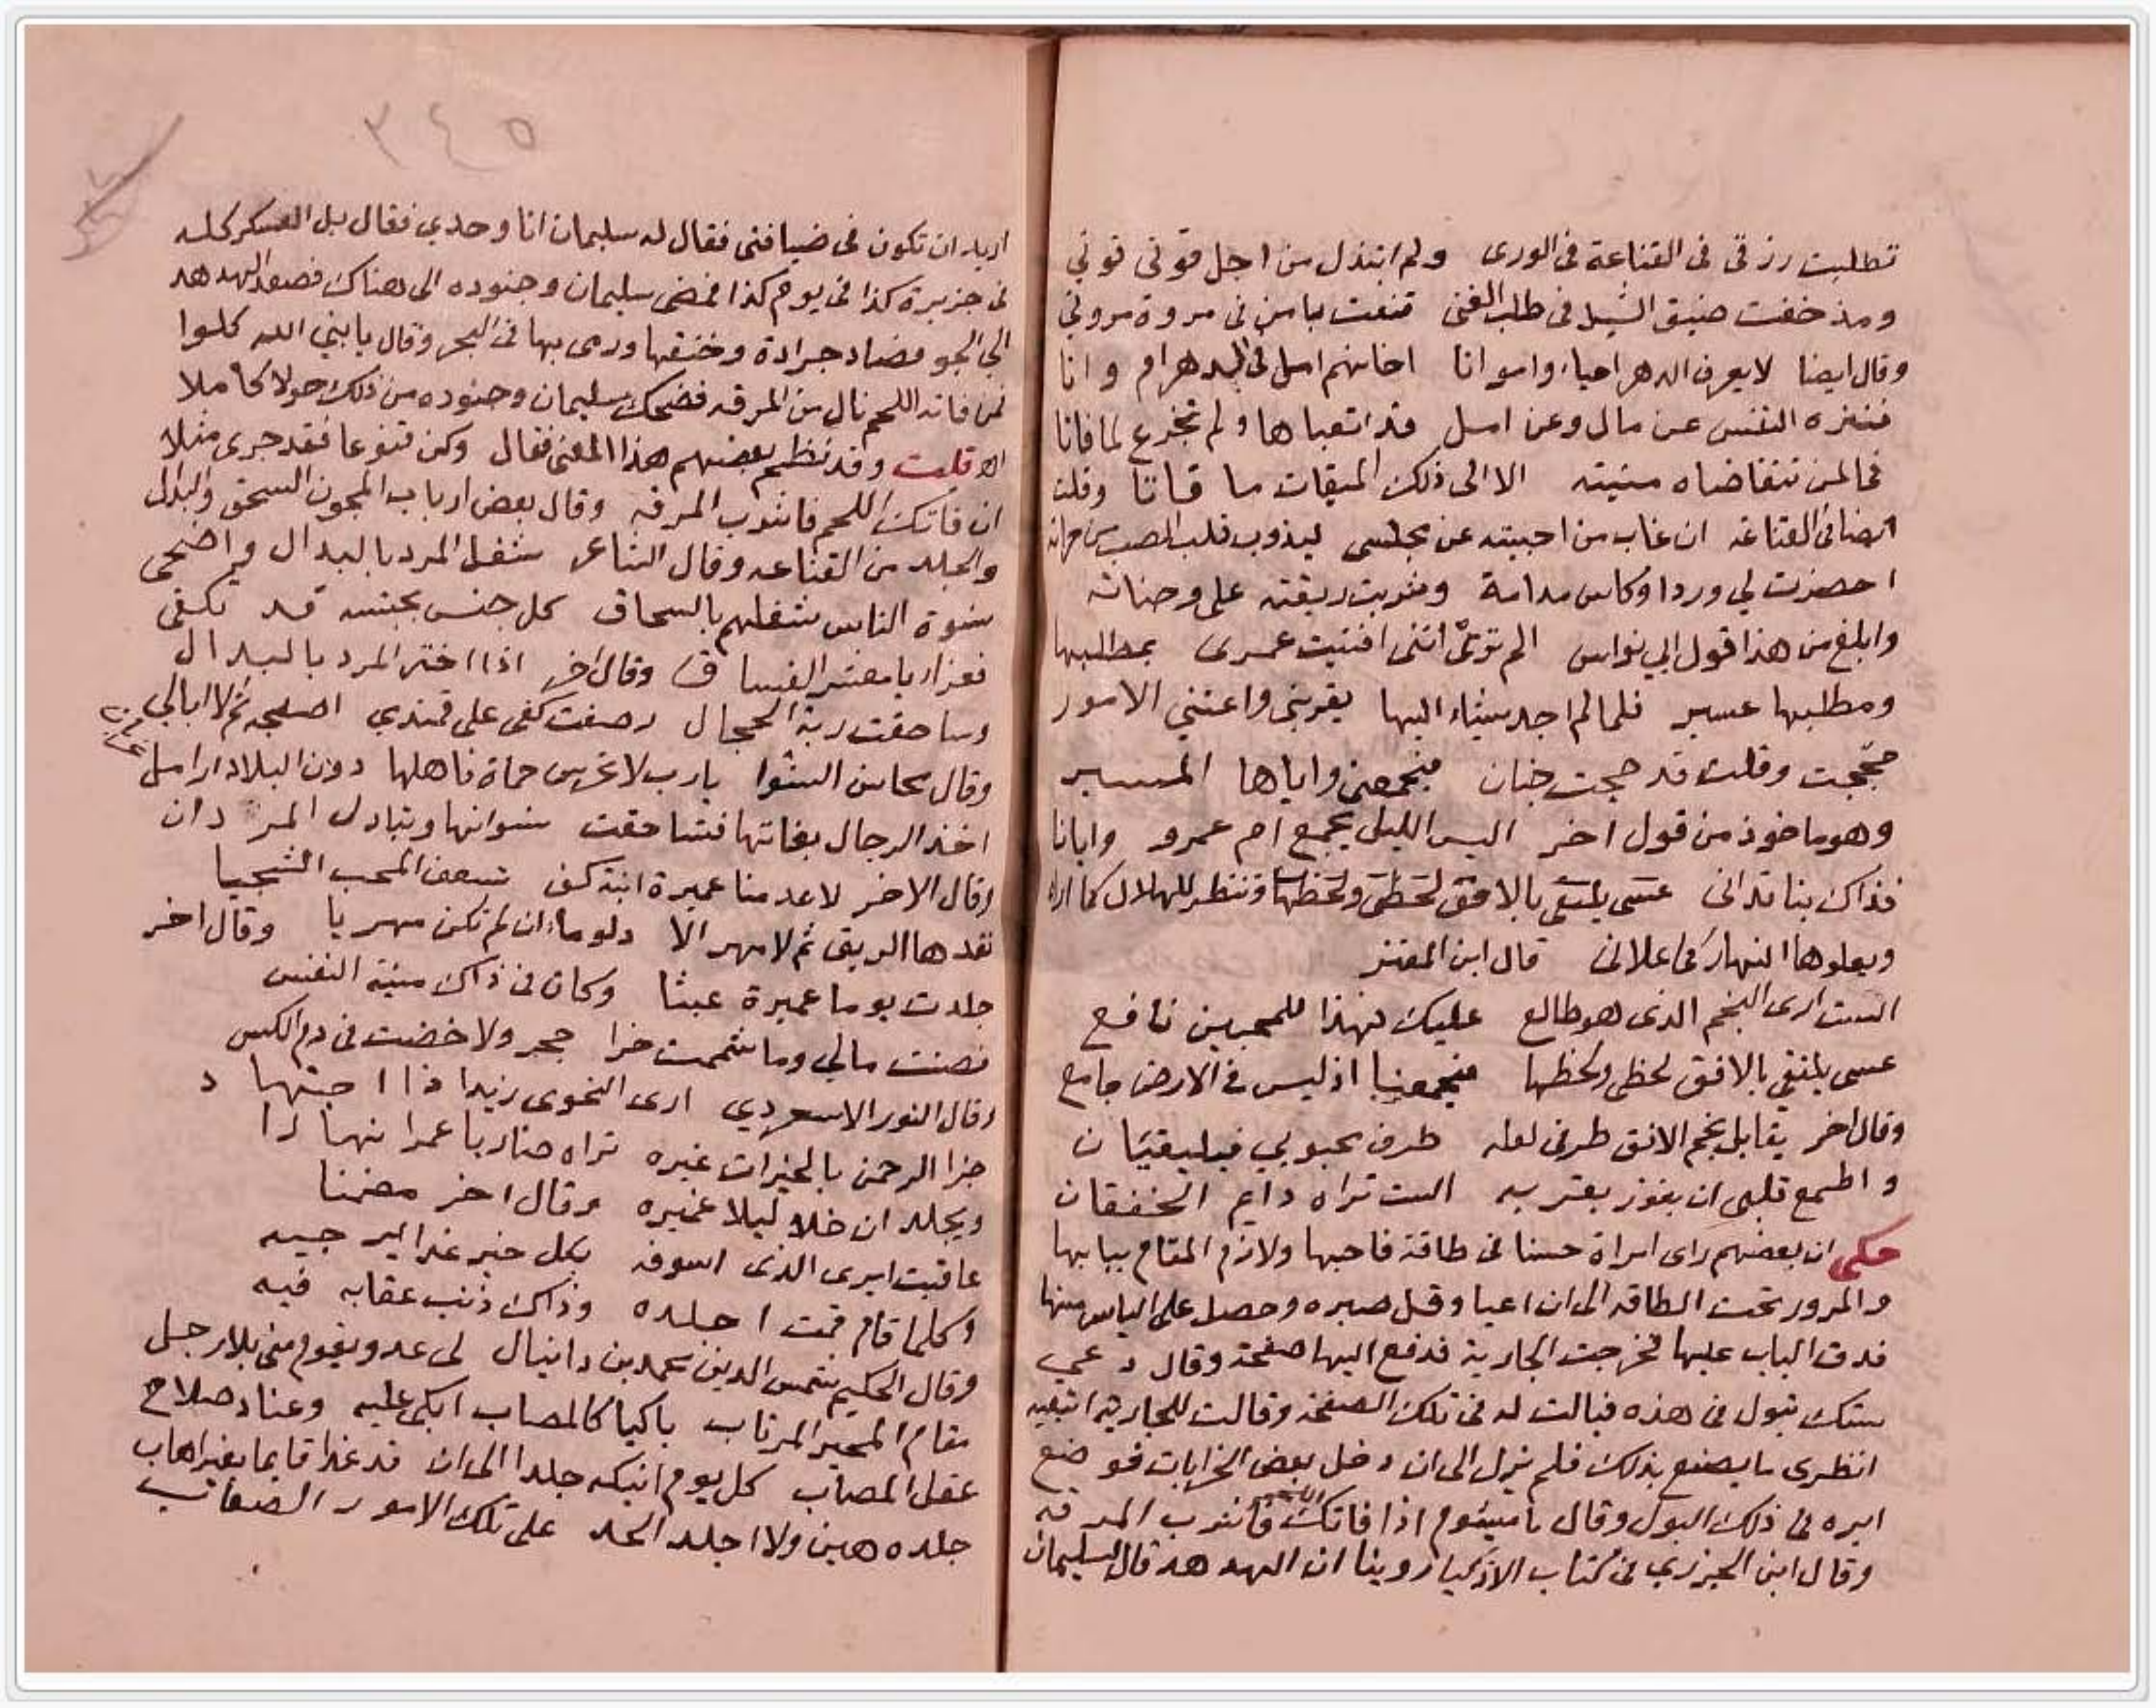 تطلبت رزقي في القناعة في الورى ولم ابتذل من اجل قوتي قوتي
ومذ خفت ضيق السبل في طلب الغنى قنعت بامن في مروة مروتي
وقال ايضا لا يعرف الدهر احياء وامواتا اخانهم امل في الدهر ام وانا
فنزه النفس عن مال وعن امل قد اتعباها ولم تجزع لما فاتا
فما لمن تتقاضاه منيته الا الى ذلك الميقات ما قاتا وقلت
ايضا في القناعة ان غاب من احببته عن مجلسي ليذوب قلب الصب من حرانه
احضرت لي وردا وكاس مدامة وشربت ريقته على وجناته
وابلغ من هذا قول ابي نواس الم تر انني افنيت عمري بمطلبها
ومطلبها عسير فلما لم اجد شيئا اليها يقربني واعيتني الامور
حججت وقلت قد حجت جنان فيجمعني واياها المسير
وهو ماخوذ من قول اخر اليس الليل يجمع ام عمرو وايانا
فذاك بنا تداني عسى يلتقي بالافق لحظي ولحظها وتنظر للهلال كما اراه
ويعلوها النهار كما علاني قال ابن المعتز
الست ارى النجم الذي هو طالع عليك فهذا للمحبين نافع
عسى يلتقي بالافق لحظي ولحظها فيجمعنا اذ ليس في الارض جامع
وقال اخر يقابل نجم الافق طرفي لعله طرف محبوبي فيلتقيان
واطمع قلبي ان يفوز بقربه الست تراه دايم الخفقان
حكى ان بعضهم راى امراة حسنا في طاقة فاحبها ولازم المقام ببابها
والمرور تحت الطاقه الى ان اعيا وقل صبره وحصل على الياس منها
فدق الباب عليها فخرجت الجارية فدفع اليها صفحة وقال دعي
ستك تبول في هذه فبالت له في تلك الصفحة وقالت للجاريه اتبعيه
انظري ما يصنع بذلك فلم يزل الى ان دخل بعض الخرابات فوضع
ايره في ذلك البول وقال يا ميشوم اذا فاتك اللحم فاشرب المرقه
وقال ابن الجوزي في كتاب الاذكيا روينا ان الهدهد قال لسليمان
٣٤٥
اريد ان تكون في ضيافتي فقال له سليمان انا وحدي فقال بل العسكر كله
في جزيرة كذا في يوم كذا فمضى سليمان وجنوده الى هناك فصعد الهدهد
الى الجو فصاد جرادة وخنقها ورمى بها في البحر وقال يا نبي الله كلوا
فمن فاته اللحم نال من المرقه فضحك سليمان وجنوده من ذلك حولا كاملا
اه قلت وقد نظم بعضهم هذا المعنى فقال وكن قنوعا فقد جرى مثلا
ان فاتك اللحم فاشرب المرقه وقال بعض ارباب المجون السحق والبدل
والجلد من القناعه وقال الشاعر شغل المرد بالبدال واضحى
نسوة الناس شغلهم بالسحاق كل جنس بجنسه قد تكفى
فعزاء يا معشر الفساق وقال اخر اذا اختر المرد بالبدال
وساحقت ربة الحجال رصفت كفى على قمندي اصلجه ثم لا ابالي
وقال محاسن الشوا يارب لا تحرس حماة فاهلها دون البلاد ارامل
اخذ الرجال بغاتها فتساحقت نسوانها وتبادل المردان
وقال الاخر لا عدمنا عميرة ابنة كف تسعف المحب الشجيا
نقدها الريق ثم لا مهر الا دلو ماء ان لم تكن مهريا وقال اخر
جلدت يوما عميرة عبثا وكان في ذاك منية النفس
فصنت مالي وما شممت خرا حجر ولا خضت في دم الكس
وقال النور الاسعردي ارى النحوي زيدا ذا اجتهاد
جزا الرحمن بالخيرات غيره تراه ضاربا عمرا نهارا
ويجلد ان خلا ليلا عميره وقال اخر مضمنا
عاقبت ايري الذي اسوفه بكل خير غدا اليه جيبه
وكلما قام قمت اجلده وذاك ذنب عقابه فيه
وقال الحكيم شمس الدين محمد بن دانيال لي عدو يقوم مني بلا رجل
مقام المحير المرتاب باكيا كالمصاب ابكي عليه وعناد صلاح
عقل المصاب كل يوم انيكه جلدا الى ان قد غدا قايما بغير اهاب
جلده هين ولا اجلد الجلد على تلك الامور الصعاب